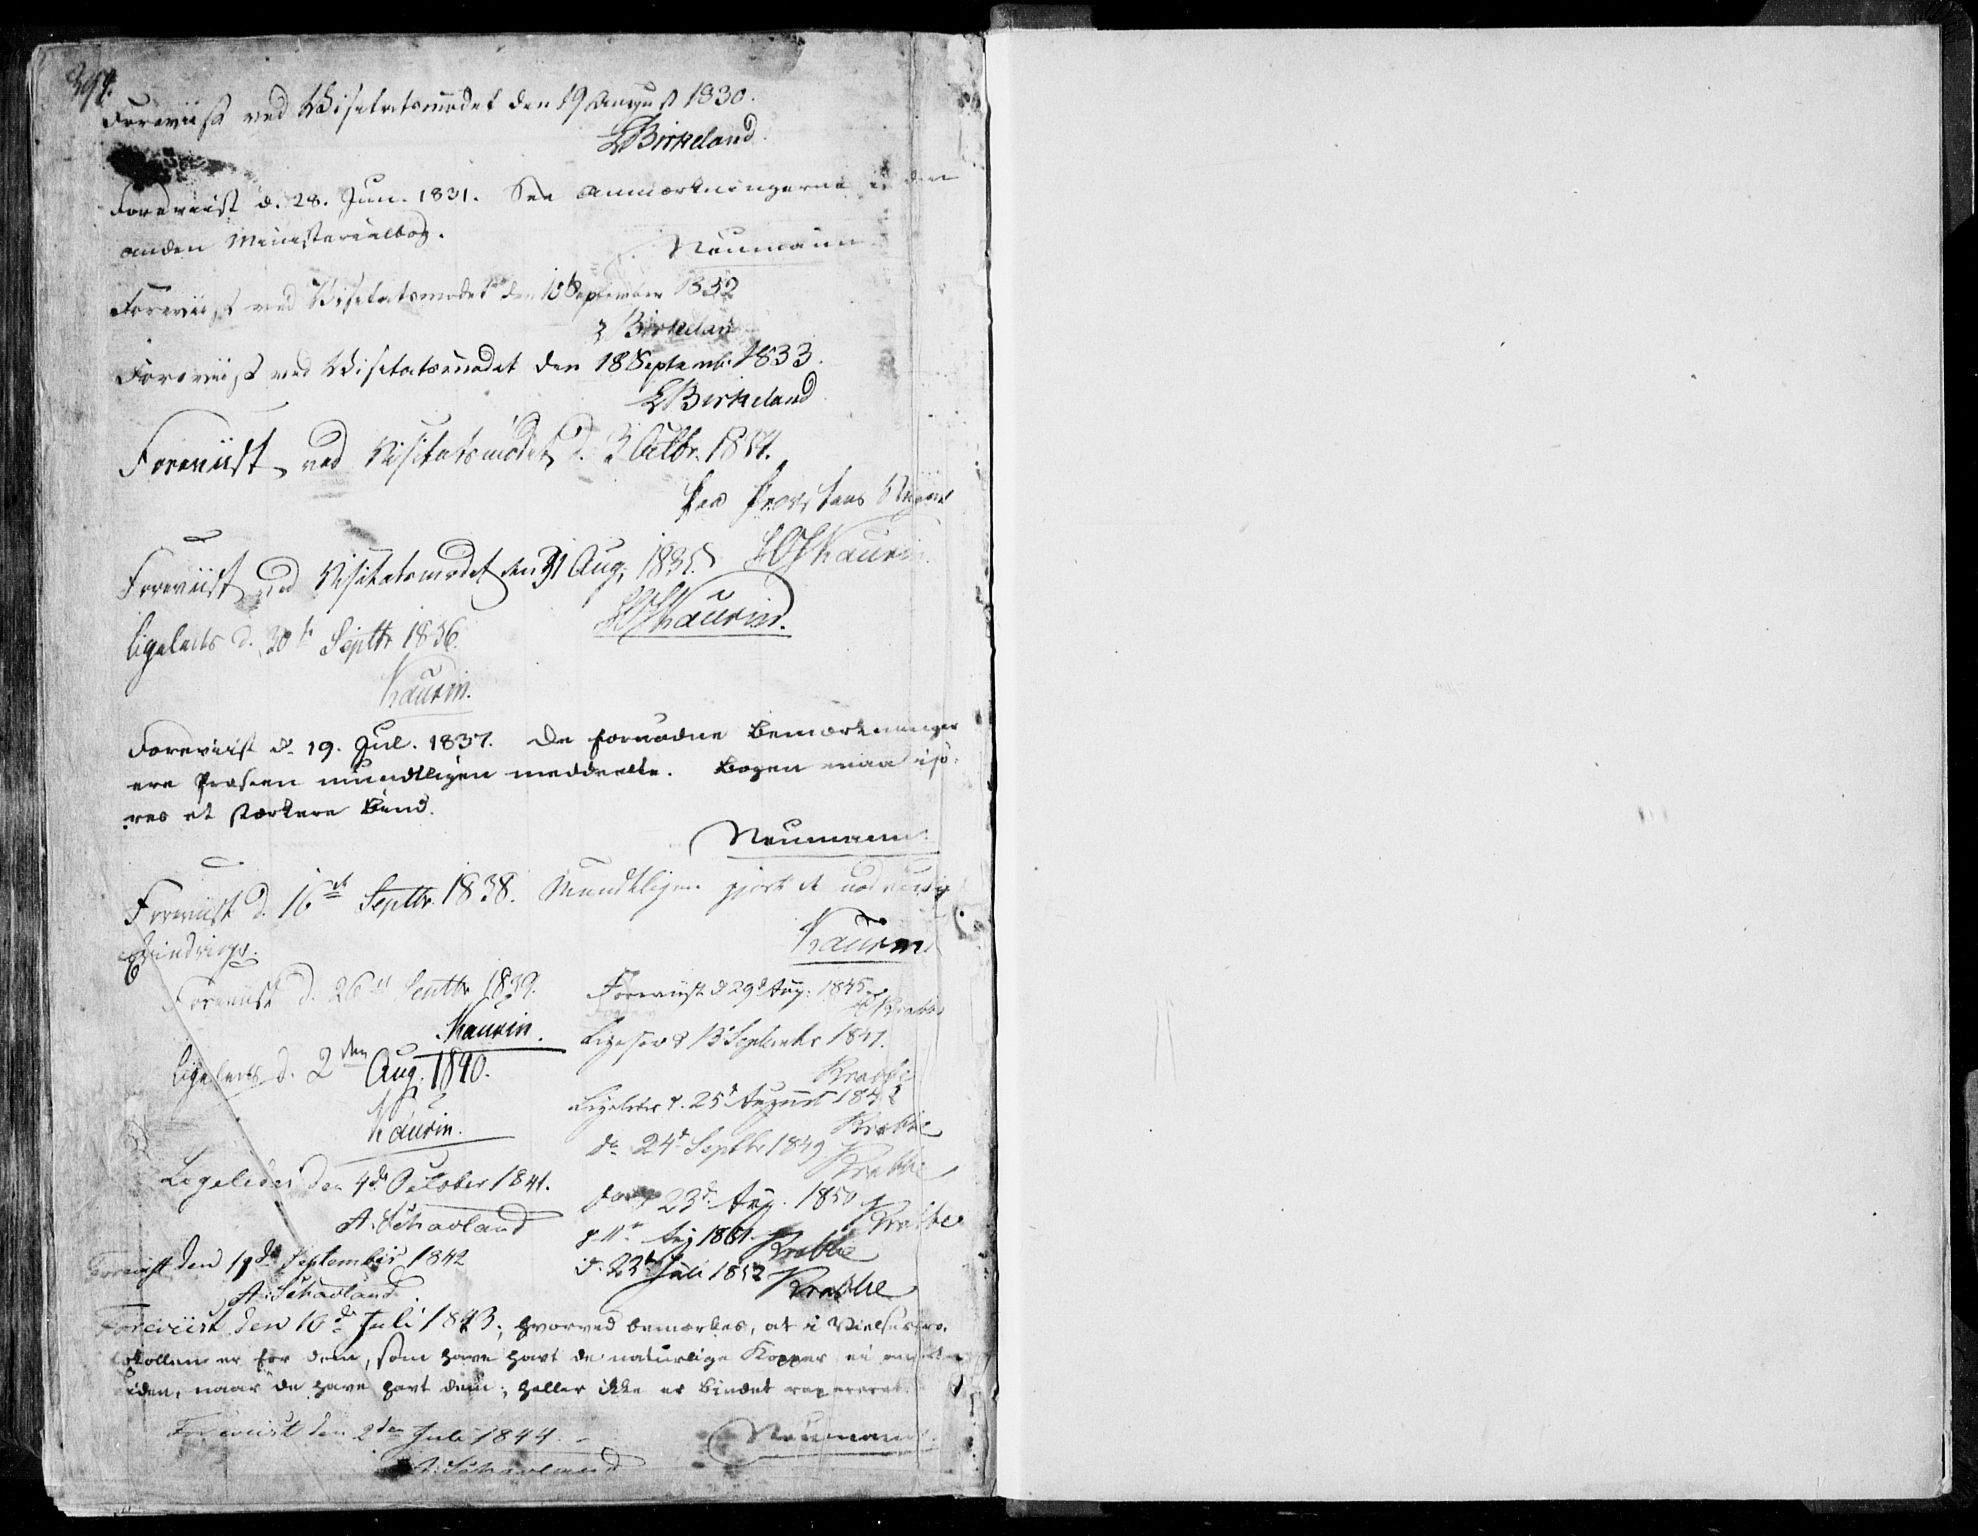 394.
Foreviist ved Visitatsmødet den 19 August 1830.
LBirkeland.
Foreviist d. 28. Jun. 1831. See Anmærkningerne i den
anden Ministerialbog.
Neumann
Foreviist ved Visitatsmødet den 10 September 1832
L Birkeland
Foreviist ved Visitatsmødet den 18 Septembr 1833.
LBirkeland
Foreviist ved Visitatsmødet d. 3 Octbr. 1834.
Paa Provstens Vegne
Kaurin
Foreviist ved Visitatsmødet den 31 Aug. 1835.
Kaurin.
Ligeledes d. 30te Septbr 1836.
Kaurin.
Foreviist d. 19. Jul. 1837. De fornødne Bemærkninger
ere Præsten mundtligen meddeelte. Bogen maa isø-
res et stærkere Bind.
Neumann.
Foreviist d. 16de Septbr. 1838. Mundtligen gjort de nødvendige
Erindringer.
Kaurin
Foreviist d. 26de Septbr 1839.
Kaurin.
Ligeledes d. 2den Aug. 1840.
Kaurin.
Ligeledes den 4de October 1841.
A. Schavland
Foreviist den 19de September 1842
A. Schavland
Foreviist den 10de Juli 1843; hvorved bemærkes, at i Vielsespro-
tokollen er for dem, som have havt de naturlige Kopper, ei
tiden, naar de have havt dem; heller ikke er Bindet repareret.
Neumann
Foreviist den 2den Juli 1844.
A. Schavland
Foreviist d 29d Aug. 1845
Krabbe
Ligesaa d 13 September 1847.
Krabbe
Ligeledes d. 25d August 1848
Krabbe
do 24d Septbr 1849
Krabbe
23d. Aug. 1850
Krabbe
d. 11te Aug 1851. Krabbe
d. 23d Juli 1852 Krabbe